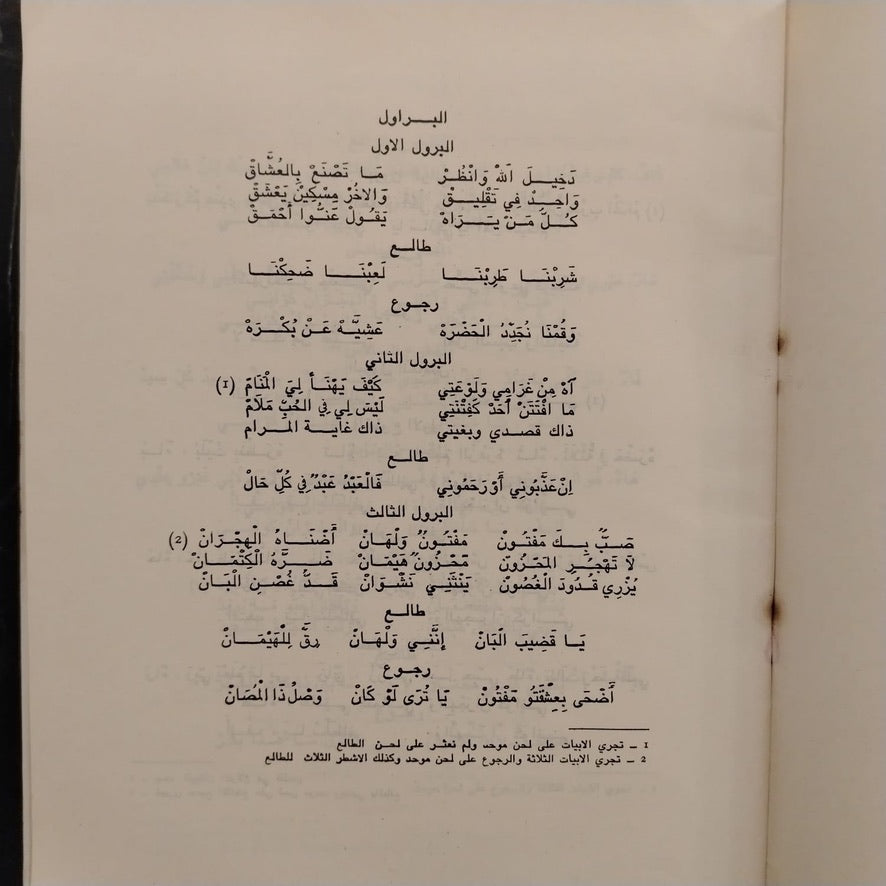 البراول
البرول الاول
دَخِيلَ اللَّهْ وَانْظُرْ مَا تَصْنَعْ بِالْعُشَّاقْ
وَاحِدْ فِي تَقْلِيقْ وَالاخُرْ مِسْكِينْ يَعْشَقْ
كُلُّ مَنْ يَرَاهْ يَقُولْ عَنُّوا أَحْمَقْ
طالع
شَرِبْنَا طَرِبْنَا لَعِبْنَا ضَحِكْنَا
رجوع
وَقُمْنَا نُجَدِّدُ الْحَضْرَهْ عَشِيَّهْ عَنْ بُكْرَهْ
البرول الثاني
آهْ مِنْ غَرَامِي وَلَوْعَتِي كَيْفَ يَهْنَأ لِيَ الْمَنَامْ (1)
مَا افْتَتَنْ أَحَدْ كَفِتْنَتِي لَيْسَ لِي فِي الحُبِّ مَلَامْ
ذاك قصدي وبغيتي ذاك غاية المرام
طالع
اِنْ عَذَّبُونِي أَوْ رَحَمُونِي فَالْعَبْدُ عَبْدٌ فِي كُلِّ حَالْ
البرول الثالث
صَبٌّ بِكَ مَفْتُونْ مَفْتُونٌ وَلْهَانْ أَضْنَاهُ الْهِجْرَانْ (2)
لَا تَهْجُرِ المَحْزُونْ مَحْزُونٌ هَيْمَانْ ضَرَّهُ الْكِتْمَانْ
يُزْرِي قُدُودَ الْغُصُونْ يَنْثَنِي نَشْوَانْ قَدُّ غُصْنِ الْبَانْ
طالع
يَا قَضِيبَ الْبَانْ إِنَّنِي وَلْهَانْ رِقَّ لِلْهَيْمَانْ
رجوع
أَضْحَى بِعِشْقَتُو مَفْتُونْ يَا تُرَى لَوْ كَانْ وَصْلُ ذَا الْمُصَانْ
1 ـ تجري الابيات على لحن موحد ولم نعثر على لحن الطالع
2 ـ تجري الابيات الثلاثة والرجوع على لحن موحد وكذلك الاشطر الثلاث للطالع